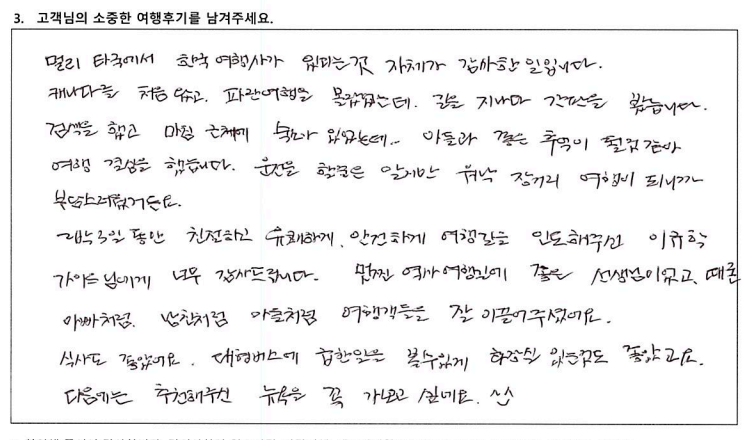 3. 고객님의 소중한 여행후기를 남겨주세요.
멀리 타국에서 한국 여행사가 있다는것 자체가 감사한 일입니다.
캐나다를 처음 왔고, 패관여행을 몰랐었는데. 길을 지나다 간판을 봤습니다.
검색을 했고 마침 근처에 숙소가 있었는데.. 아들과 좋은 추억이 될것같아
여행 결심을 했습니다. 운전을 할줄은 알지만 워낙 장거리 여행이 되니까
부담스러웠거든요.
2박3일 동안 친절하고 유쾌하게, 안전하게 여행길을 인도해주신 이규학
가이드님에게 너무 감사드립니다. 멋진 역사여행길에 좋은 선생님이었고, 때론
아빠처럼, 남친처럼 아들처럼 여행객들을 잘 이끌어주셨어요.
식사도 좋았어요. 대형버스에 급한일을 볼수있게 화장실 있는것도 좋았고요.
다음에는 추천해주신 뉴욕을 꼭 가보고 싶네요. ^^